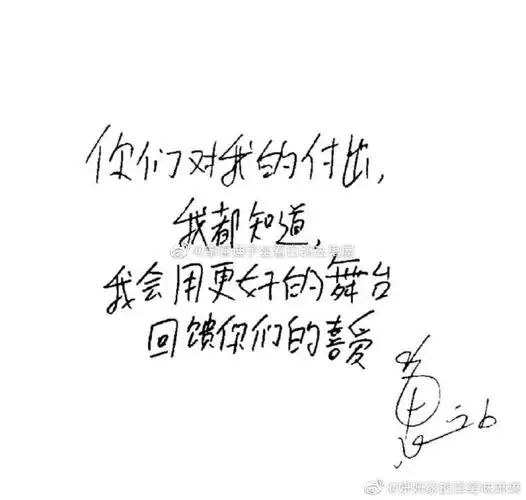 你们对我的付出,
我都知道,
我会用更好的舞台
回馈你们的喜爱